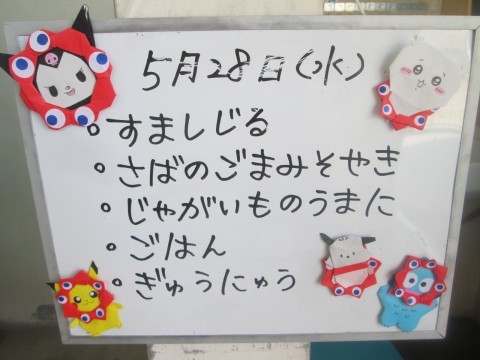 5月28日(水)
• すましじる
• さばのごまみそやき
• じゃがいものうまに
• ごはん
• ぎゅうにゅう